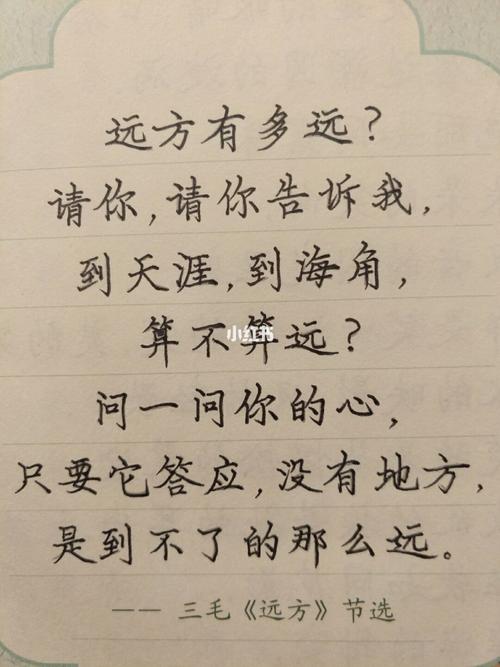 远方有多远？
请你，请你告诉我，
到天涯，到海角，
算不算远？
小红书
问一问你的心，
只要它答应，没有地方，
是到不了的那么远。
—— 三毛《远方》节选